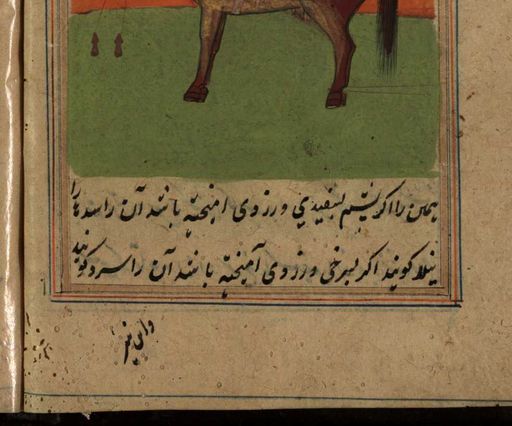 همین را اگر پشم بسفیدی و زردی امیخته باشد آن را سدها را
نیلا کویند اکر بسرخی و زردی آمیخته باشد آن را سرد کویند
و این نیز